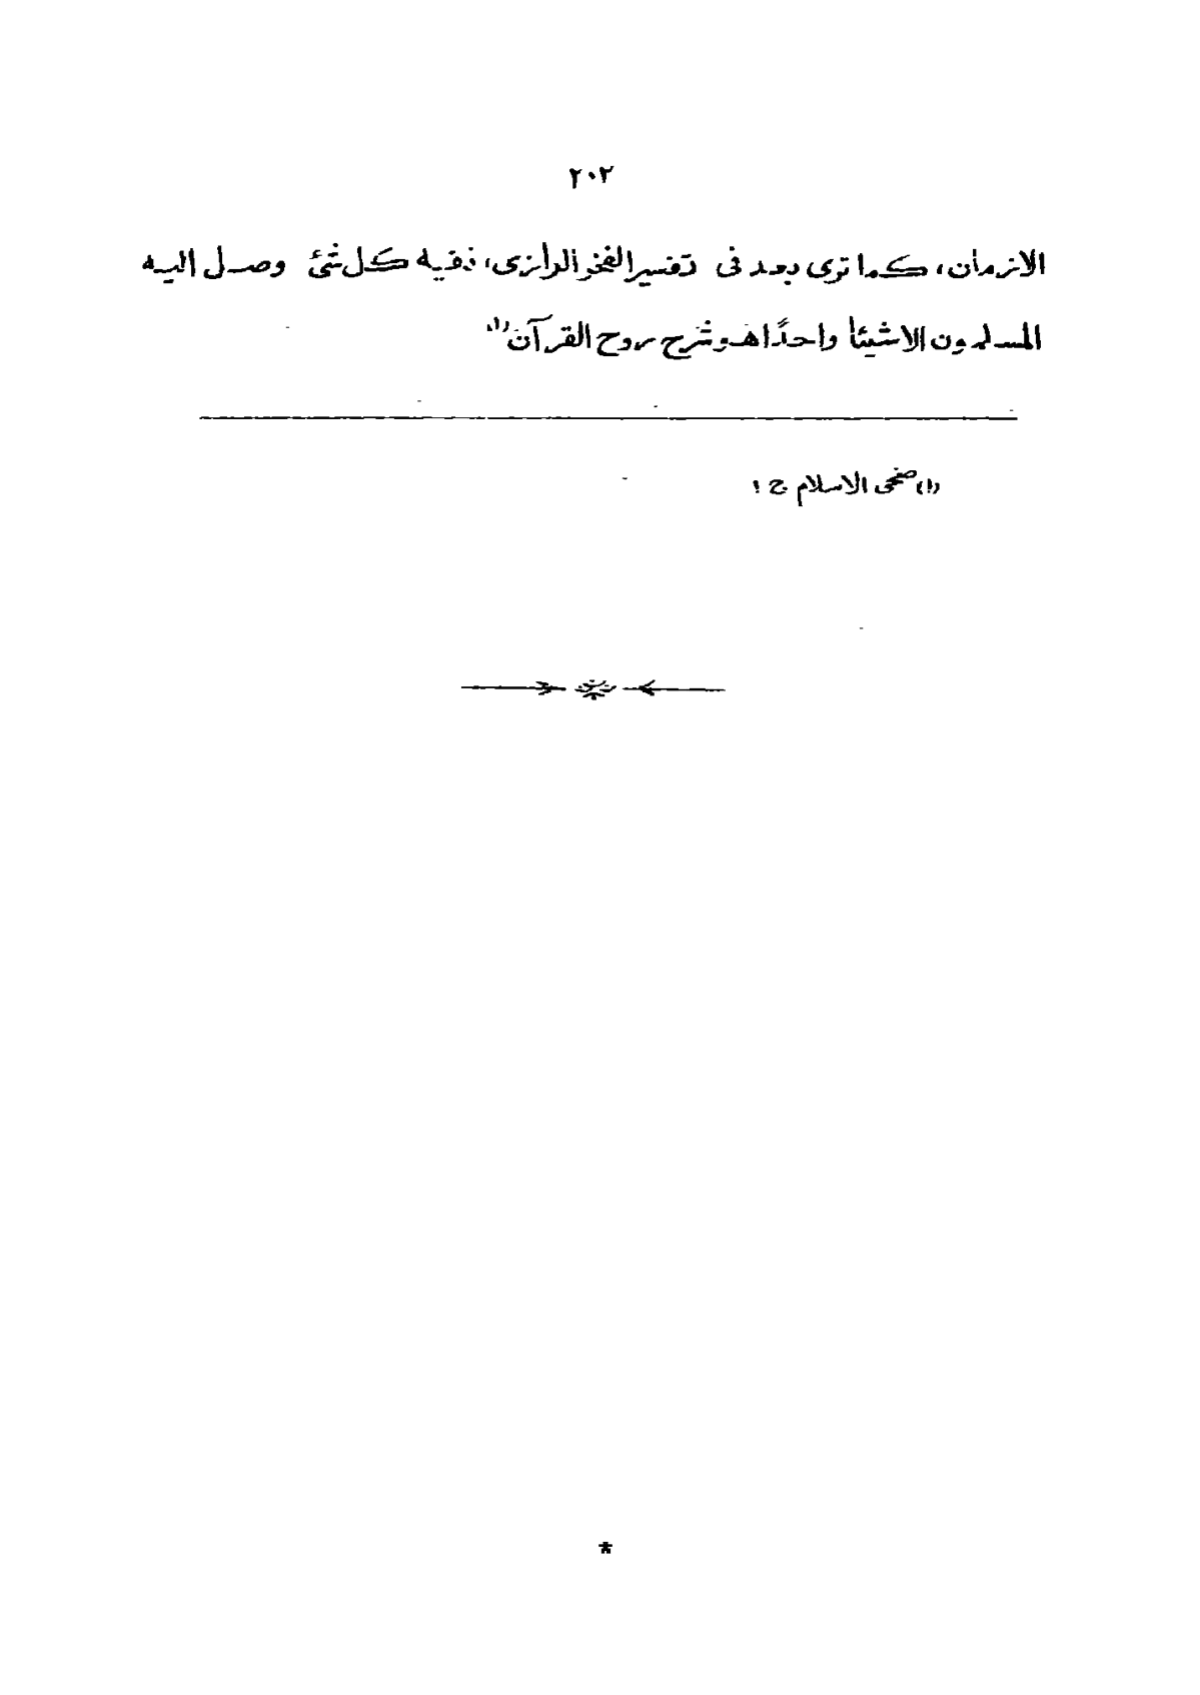 ٢٠٢
الازمان، كما ترى بعد فى تفسير الفخر الرازى، ففيه كل شئ وصل اليه
المسلمون الا شيئاً واحدًا هو شرح روح القرآن (١)
(١) ضحى الاسلام ج ١
*